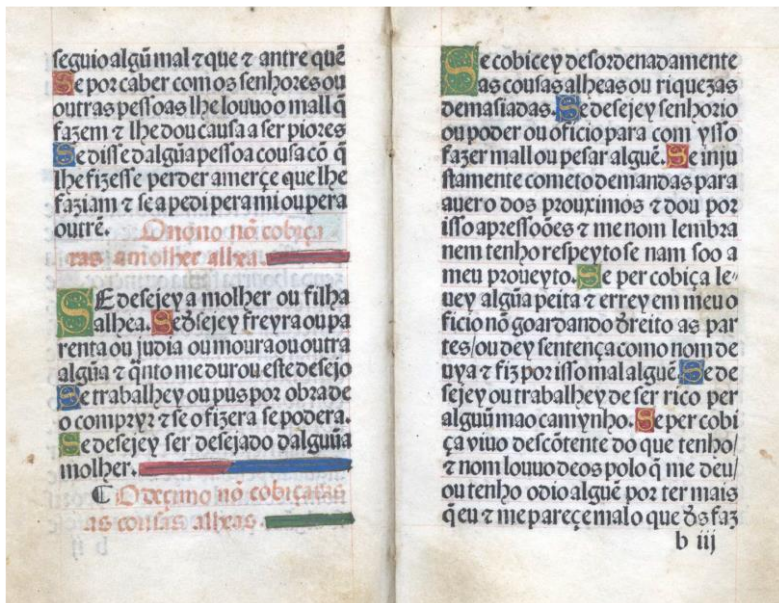 seguio algũ mal ⁊ que ⁊ antre quẽ
Se por caber com os senhores ou
outras pessoas lhe louuo o mall q̃
fazem ⁊ lhe dou causa a ser piores
Se disse dalgũa pessoa cousa cõ q̃
lhe fizesse perder a merçe que lhe
faziam ⁊ se a pedi pera mi ou pera
outrẽ.
O nono nõ cobiça
ras a molher alhea.
SE desejey a molher ou filha
alhea. Se d̃sejey freyra ou pa
renta ou judia ou moura ou outra
algũa ⁊ q̃nto me durou este desejo
Se trabalhey ou pus por obra de
o compryr ⁊ se o fizera se podera.
Se desejey ser desejado dalguũa
molher.
¶ O decimo nõ cobiçaras
as cousas alheas.
Se cobicey desordenadamente
as cousas alheas ou riquezas
demasiadas. Se desejey senhorio
ou poder ou oficio para com ysso
fazer mall ou pesar alguẽ. Se inju
stamente cometo demandas para
auer o dos prouximos ⁊ dou por
isso apressoões ⁊ me nom lembra
nem tenho respeyto se nam soo a
meu proueyto. Se per cobiça le⸗
uey algũa peita ⁊ errey em meu o
ficio nõ goardando d̃reito as par
tes/ou dey sentença como nom de
uya ⁊ fiz por isso mal alguẽ. Se de
sejey ou trabalhey de ser rico per
alguũ mao camynho. Se per cobi
ça viuo descõtente do que tenho/
⁊ nom louuo deos polo q̃ me deu/
ou tenho odio alguẽ por ter mais
q̃ eu ⁊ me pareçe mal o que d̃s faz
b iij